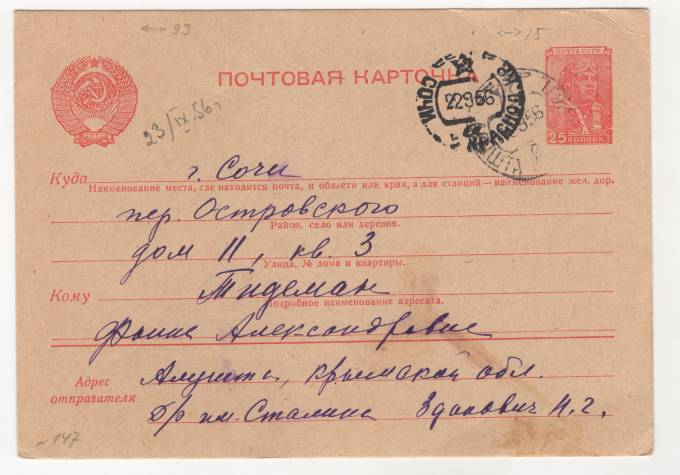 ↔ 93
↔ 15
ПОЧТОВАЯ КАРТОЧКА
ПОЧТА СССР
25 КОПЕЕК
СОЧИ
22956
23/IX.56г
Куда г. Сочи
Наименование места, где находится почта, и области или края, а для станций — наименование жел. дор.
пер. Островского
Район, село или деревня.
дом 11, кв. 3
Улица, № дома и квартиры.
Кому Тидеман
Подробное наименование адресата.
Фаине Александровне
Адрес отправителя
Алушта, Крымской обл.
им. Сталина Зданович Н.г.
№ 147